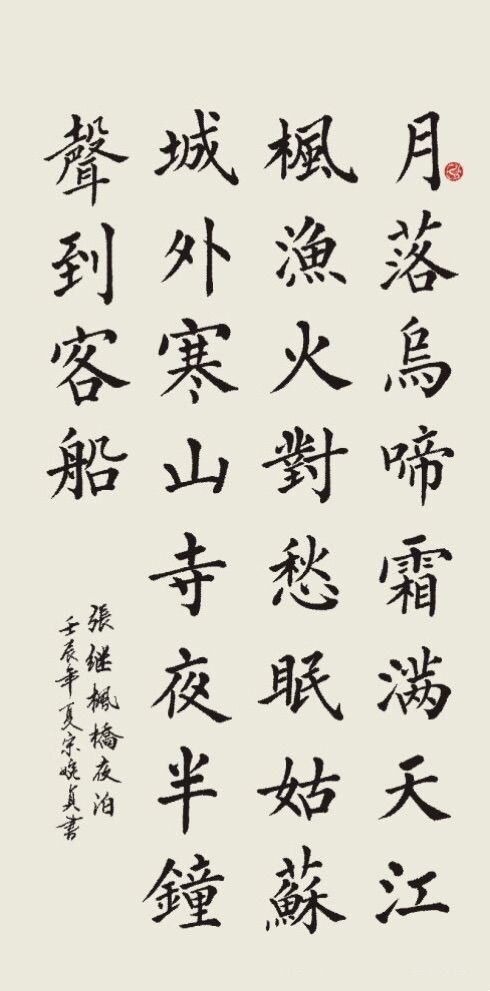 月落烏啼霜满天江
楓漁火對愁眠姑蘇
城外寒山寺夜半鐘
聲到客船
張继楓橋夜泊
壬辰年夏宗娆貞書